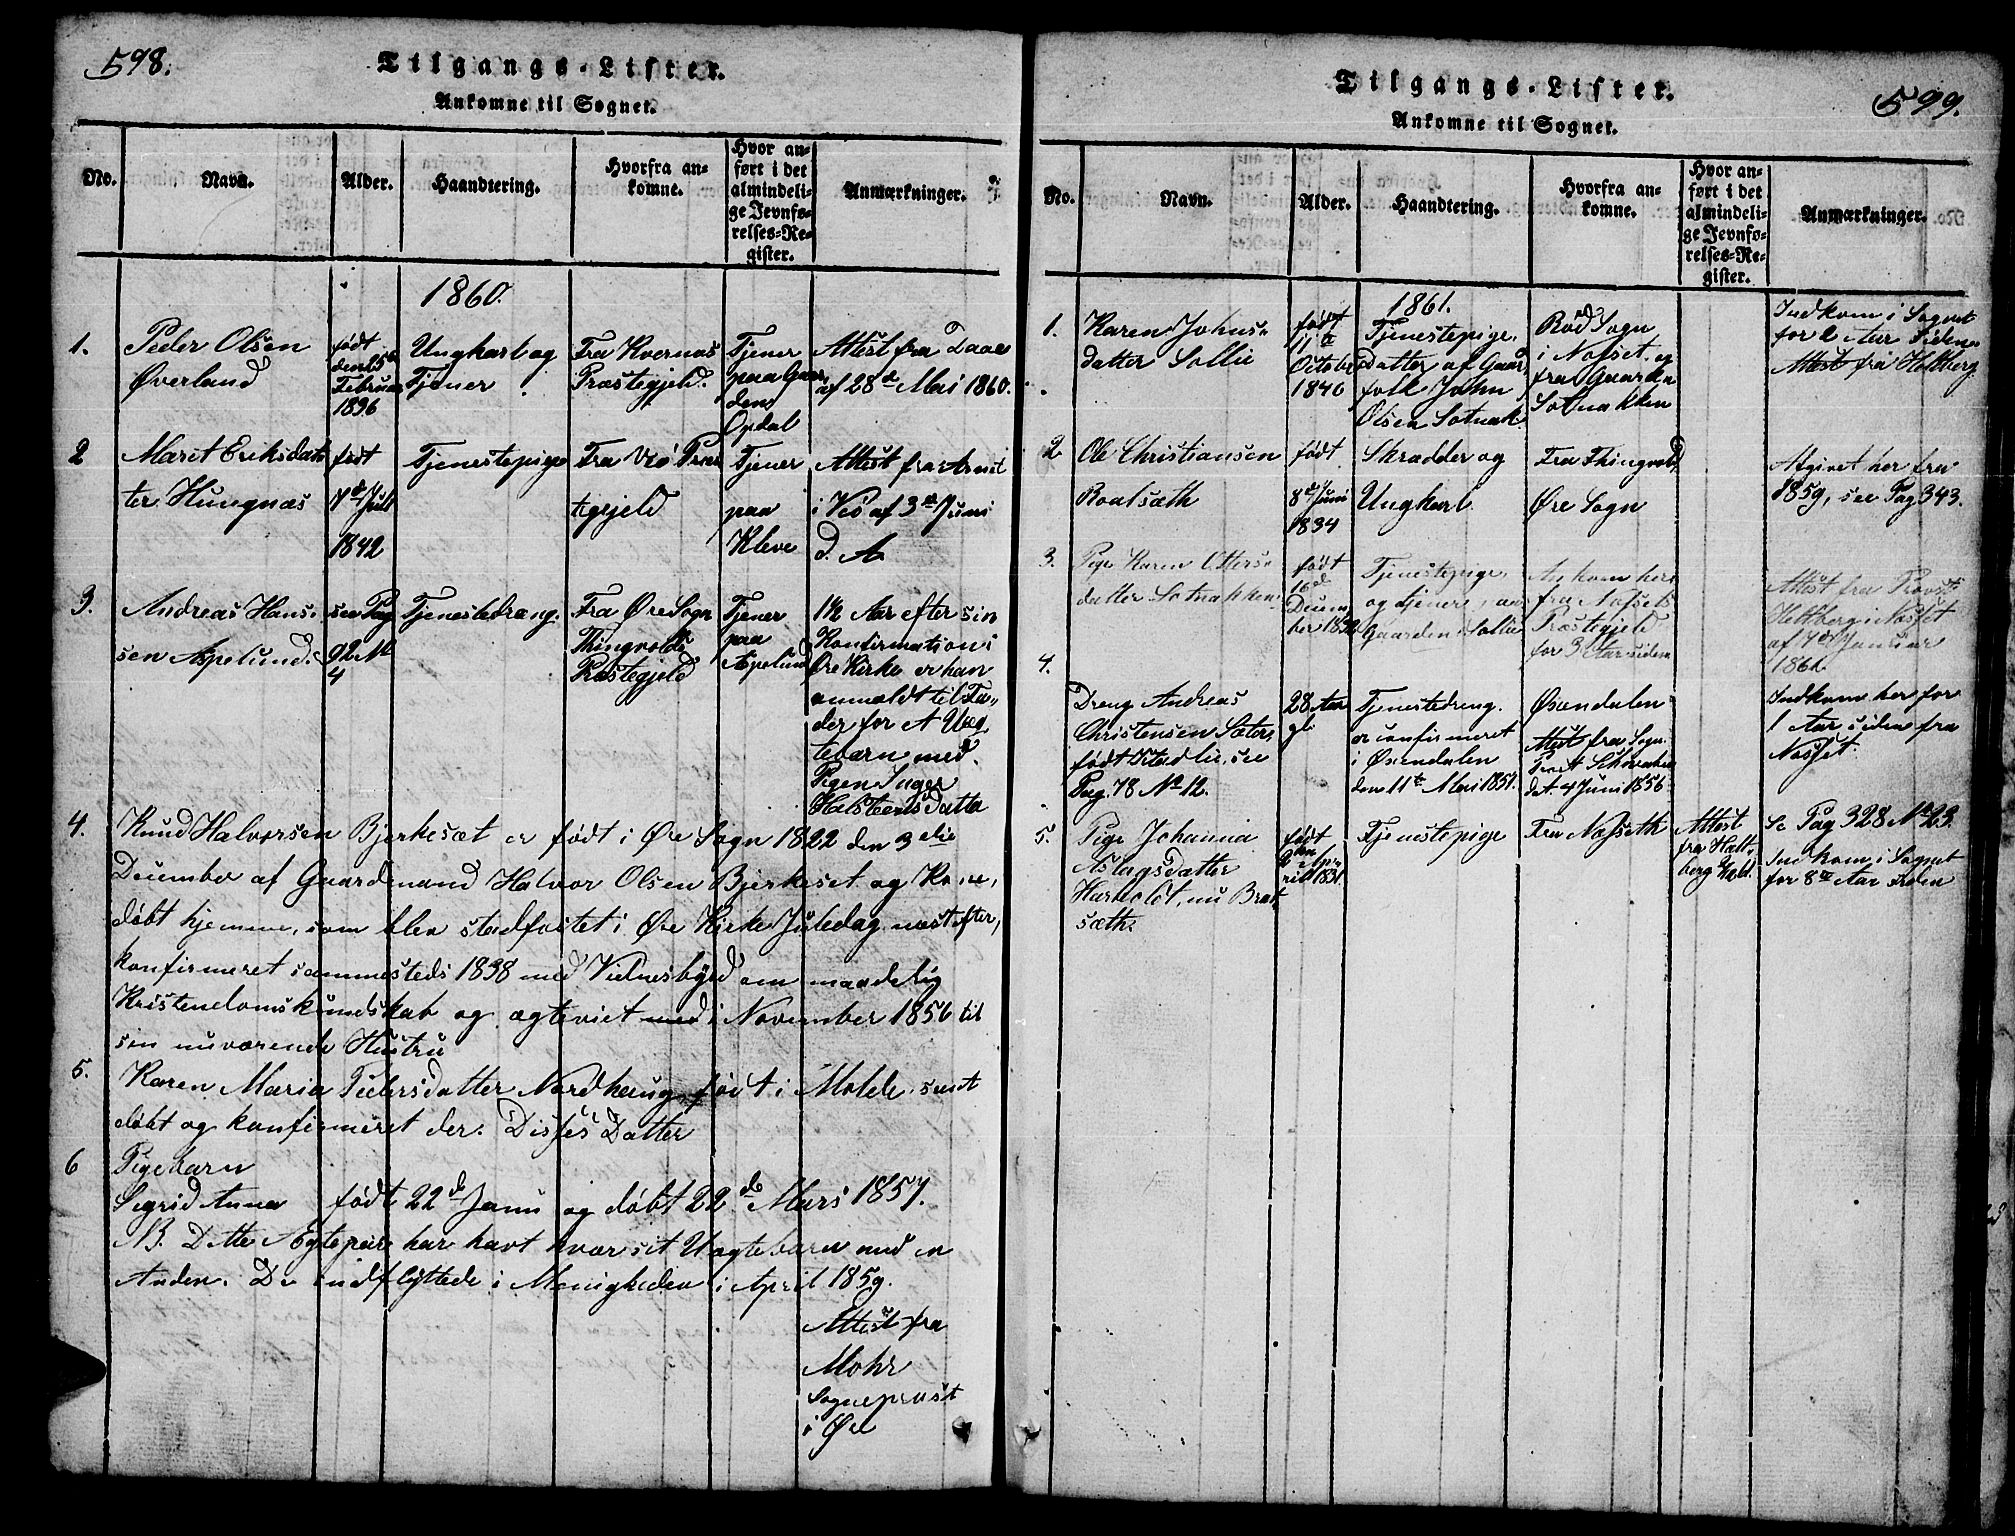 598.
Tilgangs-Lister.
Ankomne til Sognet.
No.
Navn.
Alder.
Haandtering.
Hvorfra an-
komne.
Hvor an-
ført i det
almindeli-
ge Jevnfø-
relses-Re-
gister.
Anmærkninger.
1860.
1.
Peder Olsen
Øverland
født
Februar
1836
Ungkarl og
Tjener
Fra Kvernæs
Præstegjeld.
Tjener
paa Gaar
den
Opdal
Attest fra Daae
af 28de Mai 1860.
2
Marit Eriksdat
ter Hungnæs
født
7de Juli
1842
Tjenestepige
Fra Veø Præs
tegjeld
Tjener
paa
Kleve
Attest fra
i Veø af 3de Juni
d. A
3.
Andreas Hans-
sen Apelund
see Pag
92 No
4
Tjenestedreng.
Fra Øre Sogn
Thingvolds
Præstegjeld
Tjener
paa
Apelund
1½ Aar efter sin
Konfirmation i
Øre Kirke er han
anmældt til Fa-
der for et Uæg
tebarn med
Pigen Inger
Halsteensdatter
4.
Knud Halvorsen Bjerkesæt er født i Øre Sogn 1822 den 3die
December af Gaardmand Halvor Olsen Bjerkeset og Kone,
døbt hjemme, som blev stadfæstet i Øre Kirke Juledag næst efter,
konfirmeret sammesteds 1838 med Vidnesbyrd om maadelig
Kristendomskundskab og ægteviet med i November 1856 til
sin nuværende Hustru
5.
Karen Maria Pedersdatter Nordhaug født i Molde, samt
døbt og konfirmeret der. Disses Datter
6
Pigebarn
Sigrid Anna født 22de Janu og døbt 22de Mars 1857.
NB. Dette Ægtepar har havt hvær sit Uægtebarn med en
Anden. De indflyttede i Menigheden i April 1859.
Attest fra
Mohr
Sogneprest
i Øre
599.
Tilgangs-Lister.
Ankomne til Sognet.
No.
Navn.
Alder.
Haandtering.
Hvorfra an-
komne.
Hvor an-
ført i det
almindeli-
ge Jevnfø-
relses-Re-
gister.
Anmærkninger.
1861.
1.
Karen Johns-
datter Sollie
født
11te
October
1840
Tjenestepige,
datter af Gaard
folk John
Olsen Sotnak
Rød Sogn
i Nøsset og
fra Gaarden
Sotnakken
Indkom i Sognet
for 2 Aar siden
Attest fraHoltberg
2
Ole Christiansen
Roalsæth
født
8de Juni
1834
Skrædder og
Ungkarl
Fra Thingvold
Øre Sogn
Afgivet her fra
1859, see Pag 343.
3.
Pige Karen Otters-
datter Sotnakken
født
16de
Decem
ber 1838
Tjenestepige,
og tjener paa
Gaarden Sollie
Ankom her
fra Nøssets
Præstegjeld
for 3 Aar siden
Attest fra Provst
Holtberg i Nøsset
af 7de Januar
1861.
4.
Dreng Andreas
Christensen Sæter,
født see
Pag. 78 No 12.
28 Aar
gl.
Tjenestedreng.
er confirmeret
i Øxendalen
den 11te Mai 1851.
Øxendalen
Attest fra Sogne
Prest
dat. 4 Juni 1856.
Indkom her for
1 Aar siden fra
Nøsset.
5.
Pige Johanna
Aslagsdatter
nu Brat
sæth.
født
2den Ap-
ril 1831.
Tjenestepige
Fra Nøsseth
Attest
fra Holt-
berg
Se Pag 328 No 23.
Indkom i Sognet
for 8te Aar siden